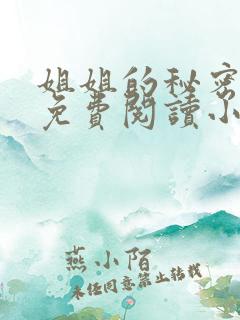 姐姐的秘密
免費閱讀小
燕小陌
未经同意禁止转载